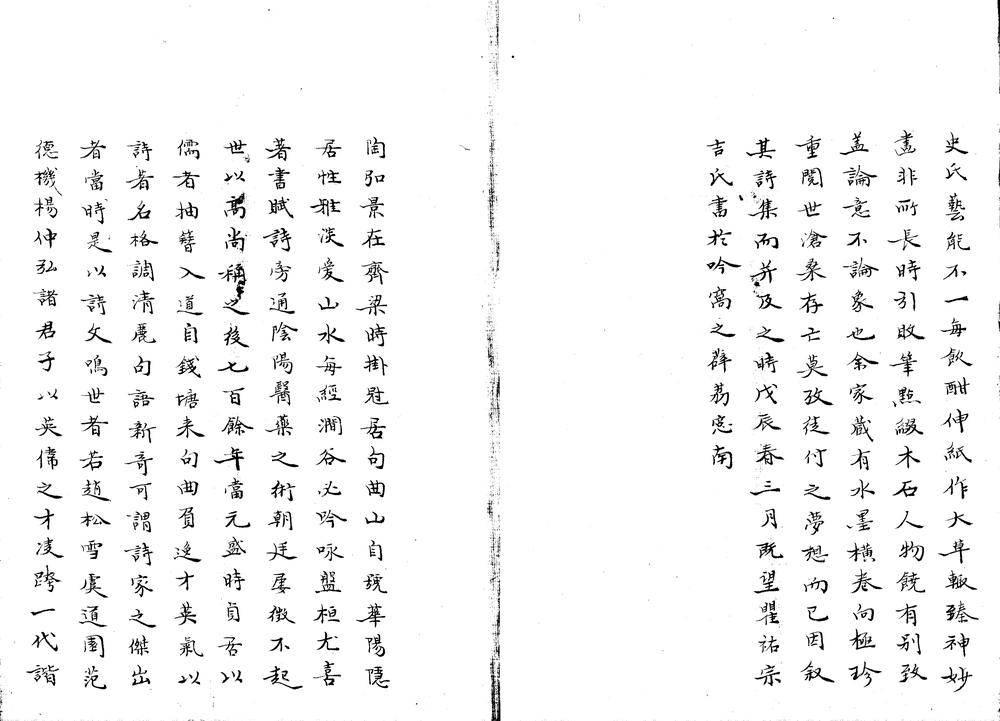 史氏藝能不一每飲酣伸紙作大草輙臻神妙
畫非所長時引敗筆㸃綴木石人物饒有别致
盖論意不論象也余家蔵有水墨橫卷向極珍
重閱世滄桑存亡莫攷徒付之夢想而已因叙
其詩集而并及之時戊辰春三月既望瞿祐宗
吉氏書於吟窩之薜荔窓南
陶弘景在齊梁時掛冠居句曲山自號華陽隱
居性雅淡愛山水每經澗谷必吟咏盤桓尤喜
著書賦詩旁通陰陽醫藥之術朝廷屢徵不起
世以髙尚稱之後七百餘年當元盛時貞居以
儒者抽簪入道自錢塘来句曲負逸才英氣以
詩著名格調清麗句語新奇可謂詩家之傑出
者當時是以詩文鳴世者若趙松雪虞道園范
德機楊仲弘諸君子以英偉之才凌跨一代諧